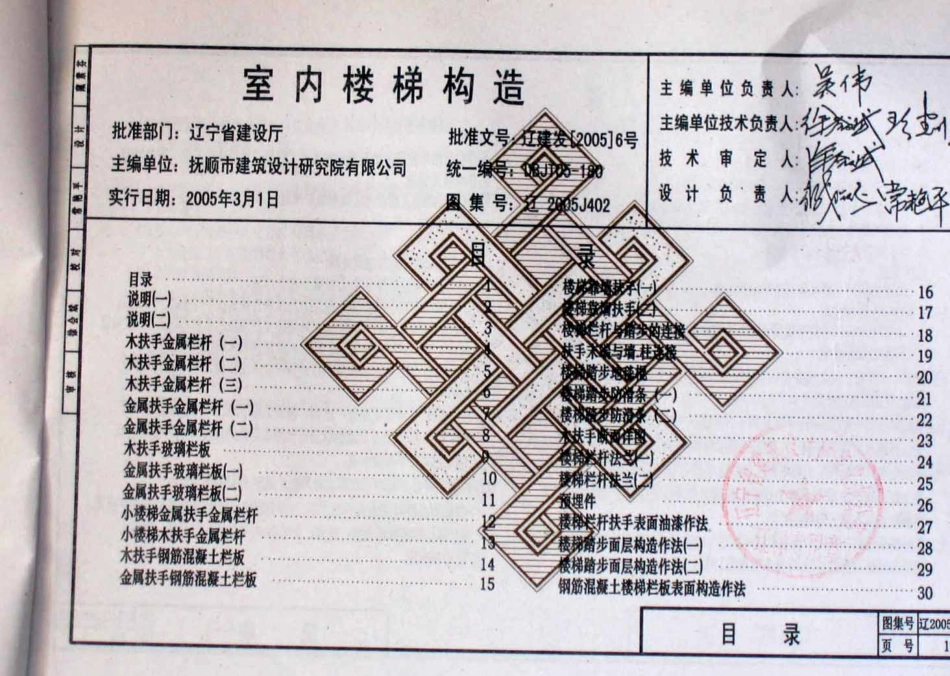 室内楼梯构造
批准部门：辽宁省建设厅
主编单位：抚顺市建筑设计研究院有限公司
实行日期：2005年3月1日
批准文号：辽建发[2005]6号
统一编号：DBJT05-190
图集号：辽 2005J402
主编单位负责人：吴伟
主编单位技术负责人：
技术审定人：
设计负责人：
目 录
目录 1
说明(一) 2
说明(二) 3
木扶手金属栏杆（一） 4
木扶手金属栏杆（二） 5
木扶手金属栏杆（三） 6
金属扶手金属栏杆（一） 7
金属扶手金属栏杆（二） 8
木扶手玻璃栏板 9
金属扶手玻璃栏板(一) 10
金属扶手玻璃栏板(二) 11
小楼梯金属扶手金属栏杆 12
小楼梯木扶手金属栏杆 13
木扶手钢筋混凝土栏板 14
金属扶手钢筋混凝土栏板 15
楼梯靠墙扶手(一) 16
楼梯靠墙扶手(二) 17
楼梯栏杆与踏步的连接 18
扶手末端与墙,柱连接 19
楼梯踏步地毯棍 20
楼梯踏步防滑条（一） 21
楼梯踏步防滑条（二） 22
木扶手断面详图 23
楼梯栏杆法兰(一) 24
楼梯栏杆法兰(二) 25
预埋件 26
楼梯栏杆扶手表面油漆作法 27
楼梯踏步面层构造作法(一) 28
楼梯踏步面层构造作法(二) 29
钢筋混凝土楼梯栏板表面构造作法 30
设计
校对
审核
目 录
图集号 辽2005
页号 1